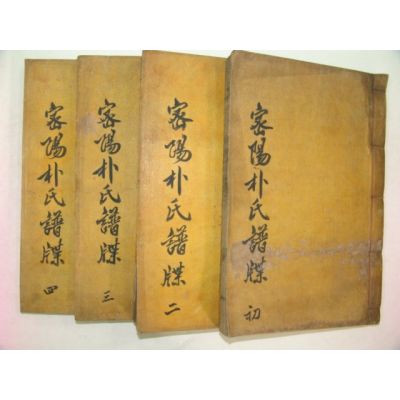 密陽朴氏譜牒 初
密陽朴氏譜牒 二
密陽朴氏譜牒 三
密陽朴氏譜牒 四